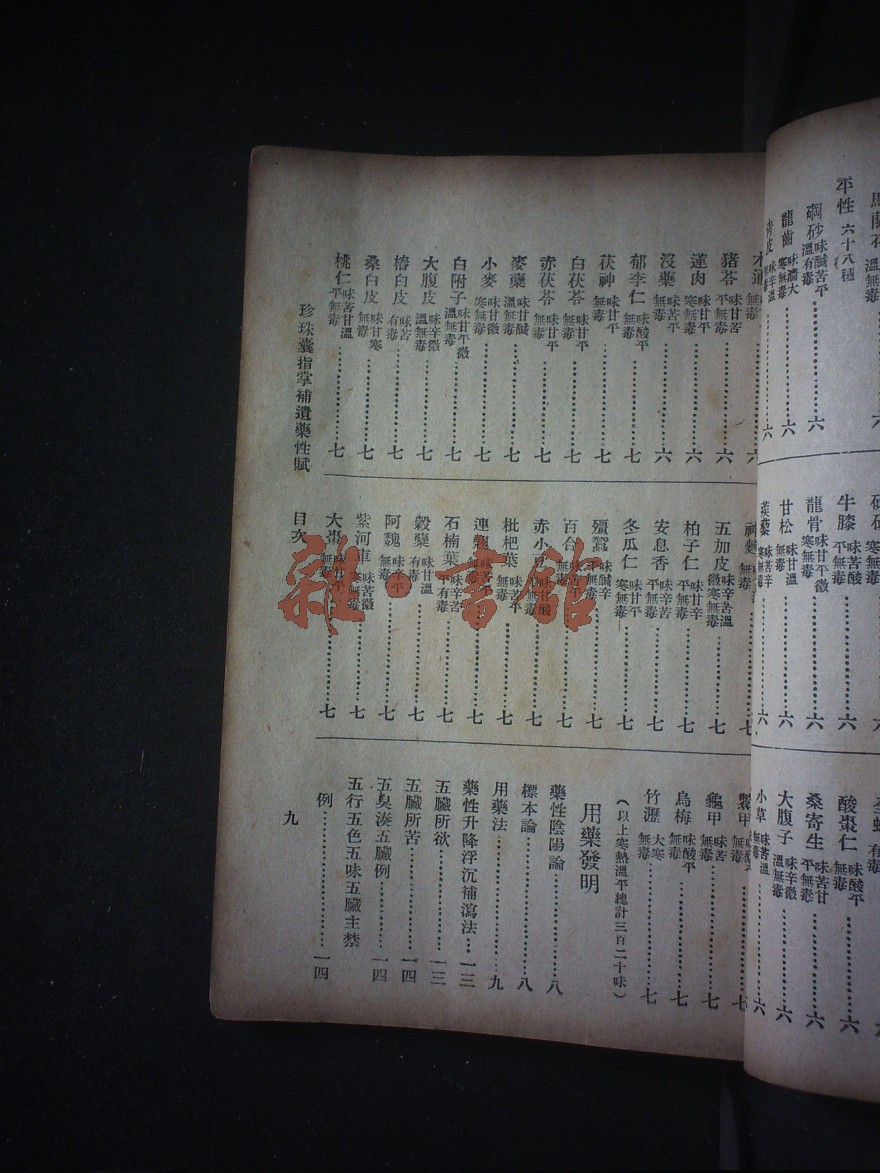 平性 六十八種
硼砂 味鹹苦平 溫有毒 六
龍齒 味澀大 寒無毒 六
牛膝 味苦酸 平無毒 六
龍骨 味甘平微 寒無毒 六
甘松 味甘溫 無毒 六
酸棗仁 味酸平 無毒 六
桑寄生 味苦甘 平無毒 六
大腹子 味辛微 溫無毒 六
小草 味苦溫 無毒 六
豬苓 味甘苦 平無毒 六
蓮肉 味甘平 寒無毒 六
沒藥 味苦平 無毒 六
郁李仁 味酸平 無毒 七
茯神 味甘平 無毒 七
白茯苓 味甘平 無毒 七
赤茯苓 味甘平 無毒 七
麥蘗 味甘鹹 溫無毒 七
小麥 味甘微 寒無毒 七
白附子 味甘平微 溫無毒 七
大腹皮 味辛微 溫無毒 七
樗白皮 味苦 有毒 七
桑白皮 味甘寒 無毒 七
桃仁 味苦甘溫 平無毒 七
五加皮 味辛苦溫 微寒無毒 七
柏子仁 味甘辛 平無毒 七
安息香 味辛苦 平無毒 七
冬瓜仁 味甘平 寒無毒 七
殭蠶 味鹹辛 平無毒 七
百合 味甘平 無毒 七
赤小豆 味甘酸 七
枇杷葉 味苦平 無毒 七
連翹 味苦平 無毒 七
石楠葉 味辛苦 平有毒 七
穀蘗 味甘溫 有毒 七
阿魏 味辛平 無毒 七
紫河車 味苦微 寒無毒 七
大棗 味甘平 無毒 七
鱉甲 七
龜甲 味苦 無毒 七
烏梅 味酸平 無毒 七
竹瀝 大寒 無毒 七
（以上寒熱溫平總計三百二十味）
用藥發明
藥性陰陽論 八
標本論 八
用藥法 九
藥性升降浮沉補瀉法 一三
五臟所欲 一三
五臟所苦 一四
五臭湊五臟例 一四
五行五色五味五臟主禁
例 一四
珍珠囊指掌補遺藥性賦 目次 九
雜·書館